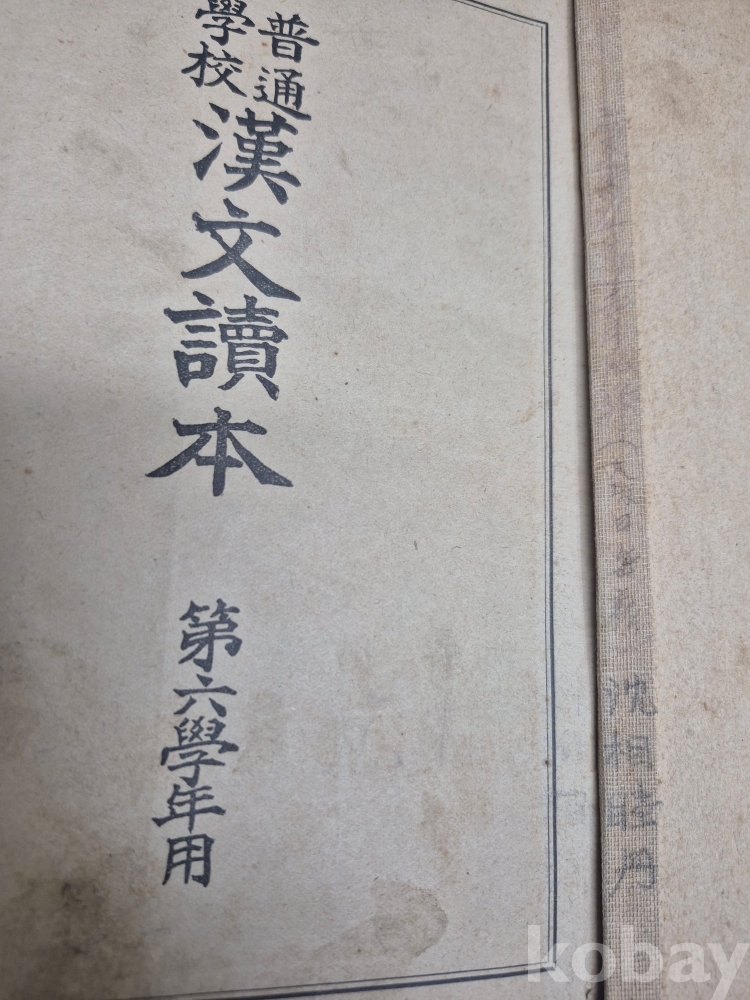 普通
學校
漢文讀本
第六學年用
kobay